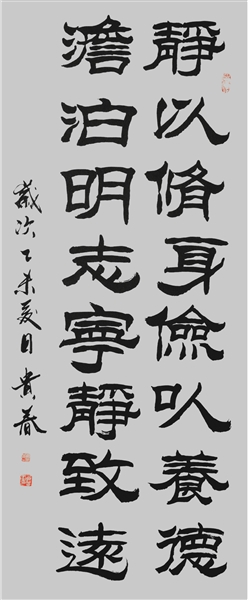 靜以脩身儉以養德
澹泊明志寧靜致遠
歲次乙未夏日貴春